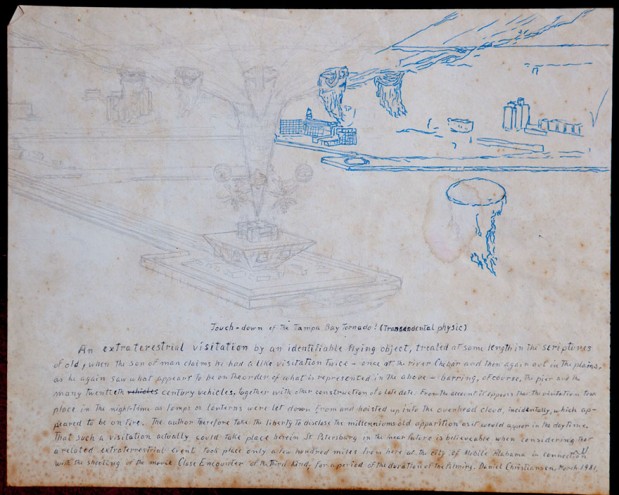 Touch-down of the Tampa Bay Tornado! (Transendental physic)
An extraterestrial visitation by an identifiable flying object, treated at some length in the scriptures
of old, when the son of man claims he had a like visitation twice - once at the river Chebar and then again out in the plains,
as he again saw what appears to be on the order of what is represented in the above - barring, of course, the pier and the
many twentieth vehicles century vehicles, together with other construction of a late date. From the account it appears that the visitation took
place in the nighttime as lamps or lanterns were let down from and hoisted up into the overhead cloud, incidentally, which ap-
peared to be on fire. The author therefore takes the liberty to disclose the millenniums old apparition as it would appear in the daytime.
That such a visitation actually could take place herein St Petersburg in the near future is believeable when considering that
a related extraterrestrial event took place only a few hundred miles from here at the city of Mobile Alabama in connection
with the shooting of the movie Close Encounter of the Third Kind, for a period of the duration of the filming. Daniel Christiansen, March 1981.